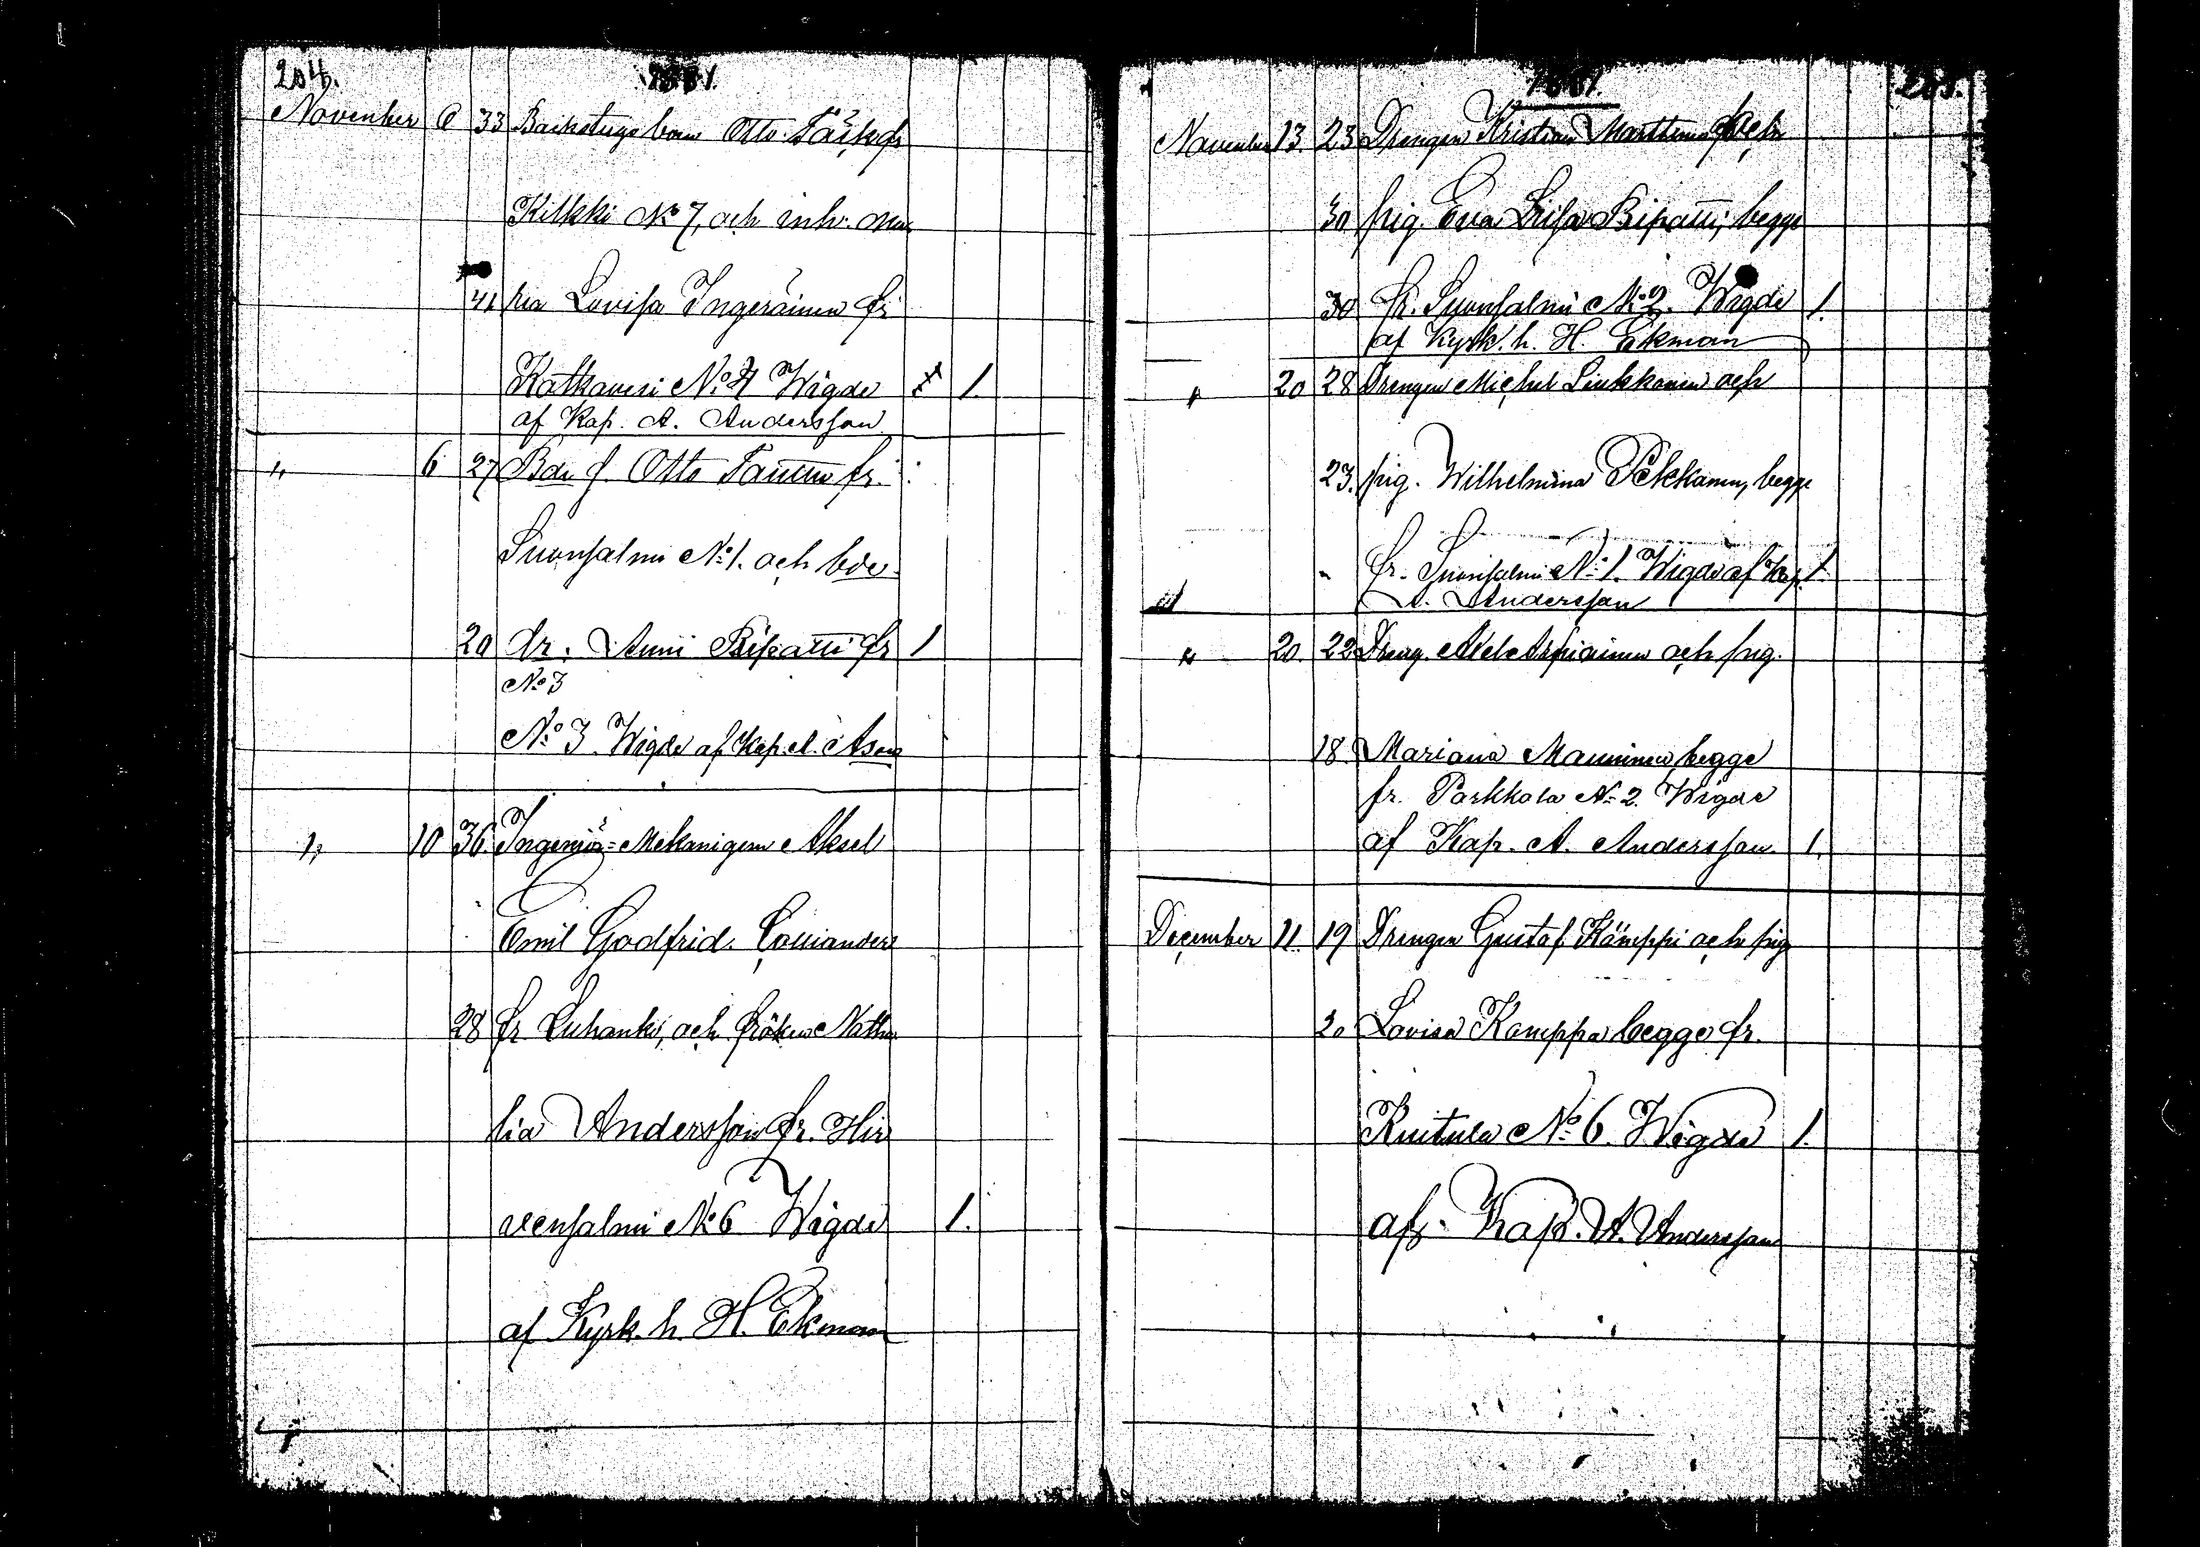 204.
1881.
November 6 33 Backstugs bon Otto Täck fr
Kilkki No 7, och inh. enk
41 kan Lovisa Ingeräinen fr
Kathavesi No 4 Wigde 1.
af Kap. A. Andersson
" 6 27 Bde f. Otto fr.
Suonsalmi No 1. och bde
20 dr. Anni Ripatti fr 1
No 3
No 3 Wigde af Kap. A. Ason
" 10 36. Ingeniör-Mekanigern Aksel
Emil Godfrid. Colliander
28 fr Luhanko, och fröken Natha
lia Andersson fr. Hir
vensalmi No 6 Wigde 1.
af Kyrk. h. H. Ekman
1881.
205.
November 13. 23 Drengen Kristian Marttinen och
30 pig. Eva Lisa Ripatti, begge
30 fr. Suonsalmi No 2. Wigde 1.
af Kyrk. h. H. Ekman
" 20 28 Drengen Michel Liukkonen och
23. pig. Wilhelmina Pekkanen, begge
fr. Suonsalmi No 1. Wigde af Kap. 1.
A. Andersson
" 20. 22 Dreng. och pig.
18. Mariana Manninen begge
fr. Parkkola No 2. Wigde
af Kap. A. Andersson. 1.
December 11. 19 Drengen Gustaf Kämppi och pig
20 Lovisa Kamppa begge fr.
Kuitula No 6. Wigde 1.
af Kap. A. Andersson